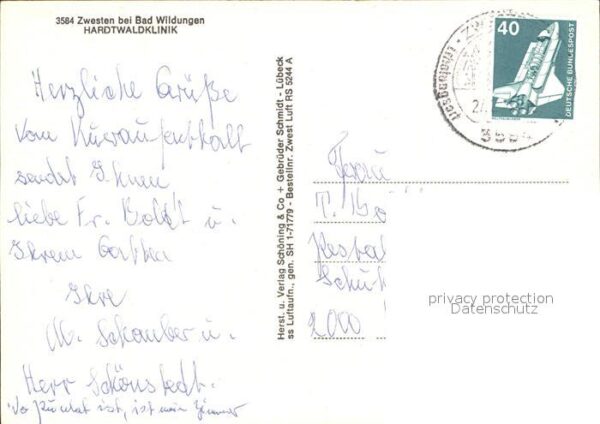 3584 Zwesten bei Bad Wildungen
HARDTWALDKLINIK
Herzliche Grüße
vom Kuraufenthalt
sendet Ihnen
liebe Fr. Boldt u.
Ihrem Gatten
Ihre
M. Schauber u.
Herr Schönstedt.
Wo Punkt ist, ist mein Zimmer
Herst. u. Verlag Schöning & Co + Gebrüder Schmidt - Lübeck
ss Luftaufn., gen. SH 1-71779 - Bestellnr. Zwest Luft RS 5244 A
40
DEUTSCHE BUNDESPOST
3584
Frau
T. Bo
Resta
Schüt
2000
privacy protection
Datenschutz